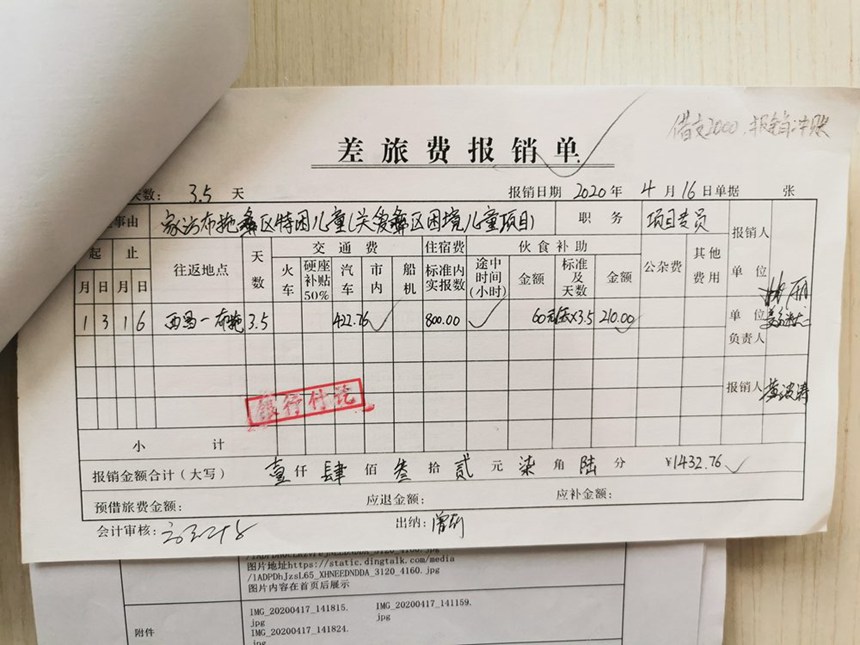 借支2000，报销冲账
差旅费报销单
天数： 3.5 天 报销日期 2020 年 4 月 16 日单据 张
事由 家访布拖彝区特困儿童(关爱彝区困境儿童项目) 职务 项目专员 报销人
起 止 往返地点 天数 交通费 住宿费 伙食补助 公杂费 其他费用 单位
月 日 月 日 火车 硬座补贴50% 汽车 市内 船机 标准内实报数 途中时间(小时) 金额 标准及天数 金额
1 3 1 6 西昌－布拖 3.5 422.76 800.00 60元/天×3.5 210.00 单位
负责人
报销人
银行付讫
小 计
报销金额合计（大写） 壹 仟 肆 佰 叁 拾 贰 元 柒 角 陆 分 ￥1432.76
预借旅费金额： 应退金额： 应补金额：
会计审核： 出纳：
图片地址https://static.dingtalk.com/media
/1ADPDhJzsL65_XHNEEDNDDA_3120_4160.jpg
图片内容在首页后展示
附件
IMG_20200417_141815. IMG_20200417_141159.
jpg jpg
IMG_20200417_141824.
jpg